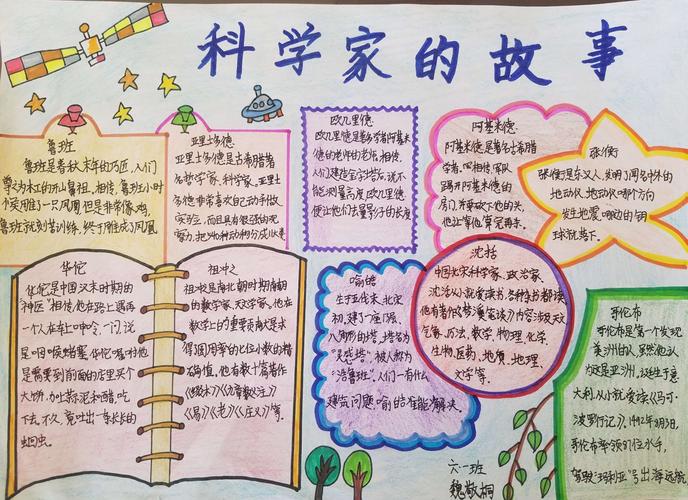 科学家的故事
鲁班
鲁班是春秋末年的巧匠,人们
尊为木工的开山鼻祖,相传,鲁班小时
个奖雕了一只凤凰,但是非常像鸡,
鲁班就刻苦训练,终于雕成了凤凰
亚里士多德
亚里士多德是古希腊著
名哲学家、科学家。亚里士
多德非常喜欢自己动手做
实验,而且有很强的观
察力,把540种动物分成
欧几里德
欧几里德是数学者阿基米
德的老师的老师,相传,
人们建造金字塔,说不
能测量高度,欧几里德
便让他们去量影子的长度
阿基米德
阿基米德是著名古希腊
学者,四相传,军队
踢开阿基米德的
房门,并要砍下他的头,
他让等他算完再杀。
张衡
张衡是东汉人,发明了闻名中外的
地动仪,地动仪哪个方向
发生地震,哪边的铜
球就落下。
华佗
华佗是中国汉末时期的
"神医"相传,他在路上遇
一个人在车上呻吟,一问,说
是咽喉堵塞,华佗嘱咐他
是需要到前面的店里买个
大饼,加上蒜泥和醋,吃
下去,不久,竟吐出一条长长的
蛔虫。
祖冲之
祖冲之是南北朝时期南朝
的数学家、天文学家,他在
数学上的重要贡献是求
得圆周率的七位小数的精
确值,他有数十篇著作
《缀术》《九章算义注》
《易》《老》《庄义》等。
喻皓
生于五代末,北宋
初,建了一座八层、
八角形的塔,塔名为
"灵感塔",被人称为
"活鲁班"。人们一有什么
建筑问题,喻皓准能解决。
沈括
中国北宋科学家、政治家,
沈括从小就爱读书,各种书都读,
他有著作《梦溪笔谈》内容涉及天文
气象、历法、数学、物理、化学
生物、医药、地质、地理、
文学等。
哥伦布
哥伦布是第一个发现
美洲的人,虽然他认
为这是亚洲,这生于意
大利,从小就爱读《马可·
波罗行记》。1492年8月3日,
哥伦布率领87位水手,
驾驶"玛利亚"号出海远航
六一班
魏敬桐